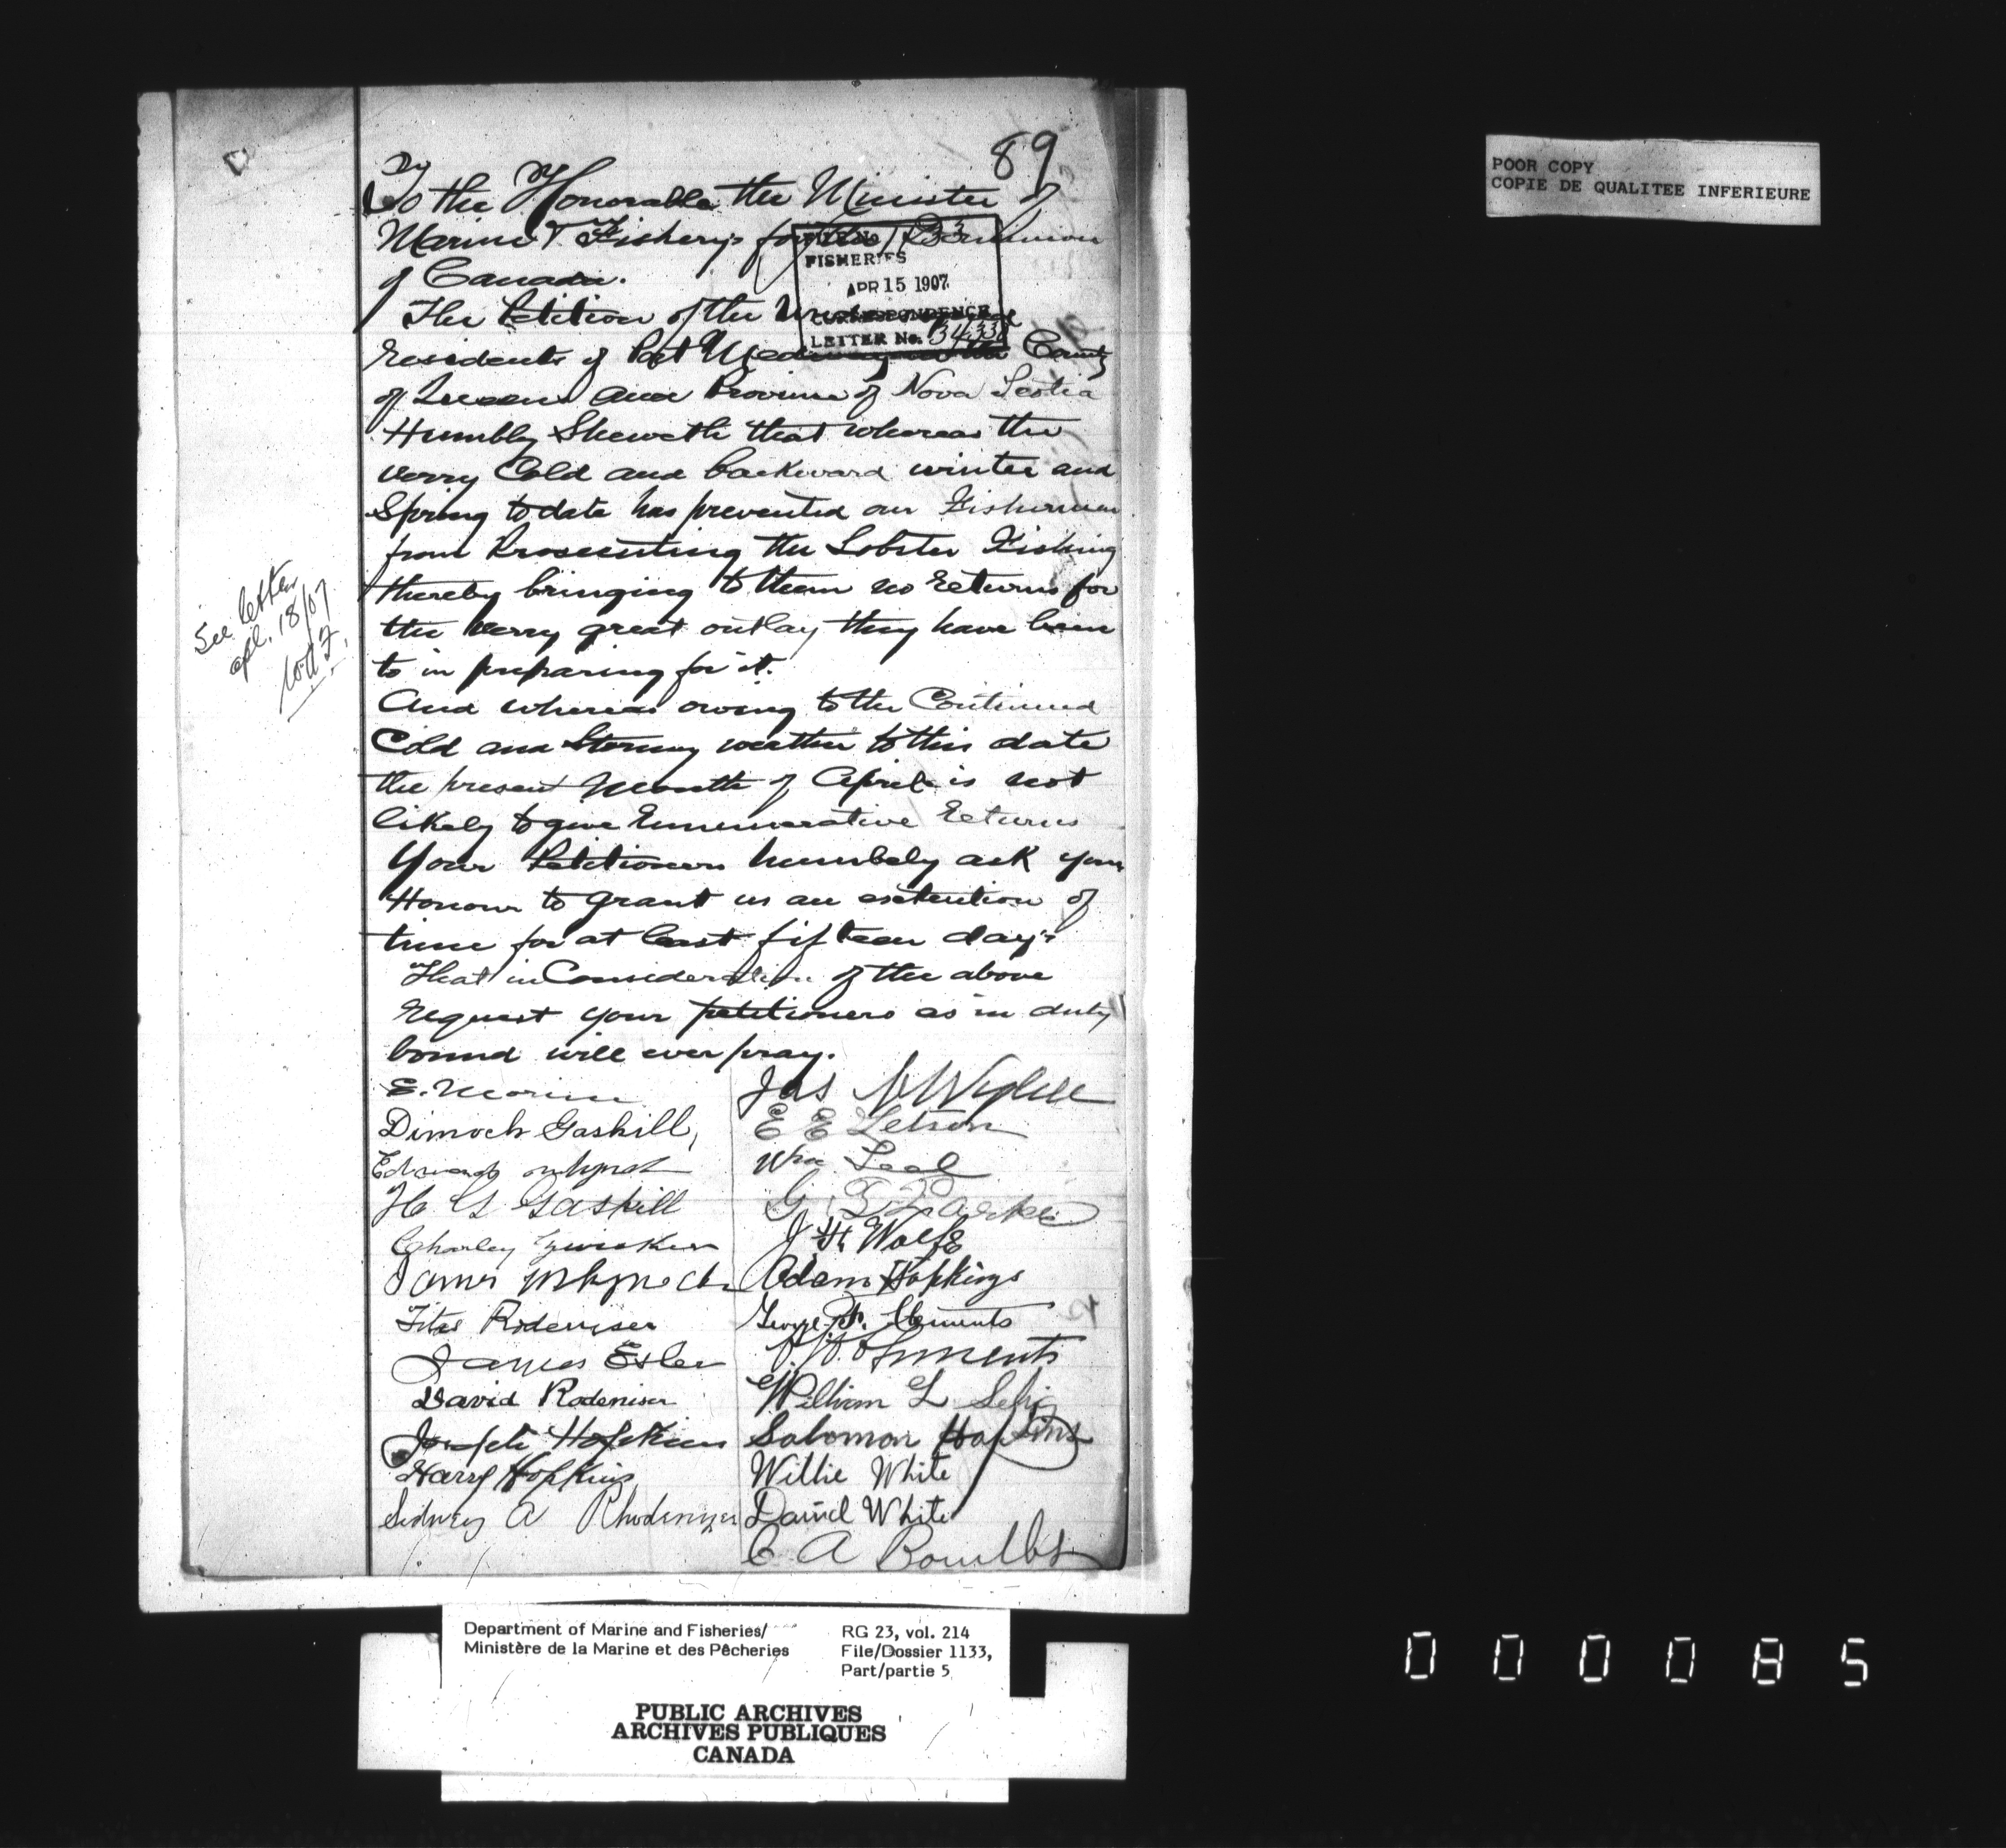 89
To the Honorable the Minister of
Marine & Fishery's for the Dominion
of Canada.
FISHERIES
APR 15 1907
CORRESPONDENCE
LETTER No.
The Petition of the
residents of Port Medway in the County
of Queens and Province of Nova Scotia
Humbly Sheweth that whereas the
verry Cold and backward winter and
Spring to date has prevented our Fishermen
from Prosecuting the Lobster Fishing
thereby bringing to them no returns for
the verry great outlay they have been
to in preparing for it.
And whereas owing to the Continued
Cold and Stormy weather to this date
the present Month of April is not
likely to give Enumerative returns
Your Petitioners humbely ask your
Honour to grant us an extention of
time for at least fifteen day's
That in Consideration of the above
request your petitioners as in duty
bound will ever pray.
See letter
apl. 18/07
E.
Dimock Gaskill, E E Letson
Edward Wm Leal
H G Gaskill G
Charley Zwicker J H Wolfe
James Adam Hopkings
Titus Rodeniser George F. Clements
James Esler
David Rodeniser William L
Joseph Hopkins Solomon Hopkins
Harry Hopkins Willie White
Sidney A Rhodenizer David White
C A
POOR COPY
COPIE DE QUALITEE INFERIEURE
Department of Marine and Fisheries/
Ministère de la Marine et des Pêcheries
RG 23, vol. 214
File/Dossier 1133,
Part/partie 5
PUBLIC ARCHIVES
ARCHIVES PUBLIQUES
CANADA
000085